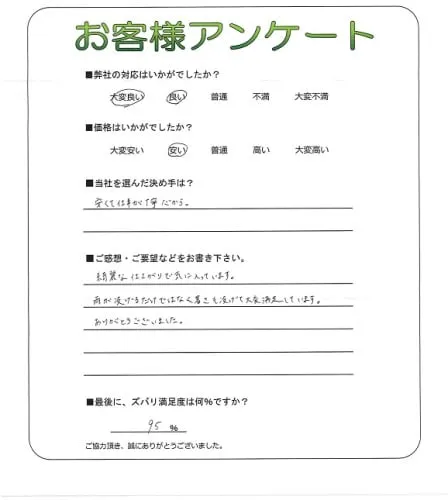 お客様アンケート
■弊社の対応はいかがでしたか?
大変良い 良い 普通 不満 大変不満
■価格はいかがでしたか?
大変安い 安い 普通 高い 大変高い
■当社を選んだ決め手は?
安くて仕事が丁寧だから。
■ご感想・ご要望などをお書き下さい。
綺麗な仕上がりで気に入っています。
雨が凌げるだけではなく暑さも凌げて大変満足しています。
ありがとうございました。
■最後に、ズバリ満足度は何%ですか?
95 %
ご協力頂き、誠にありがとうございました。